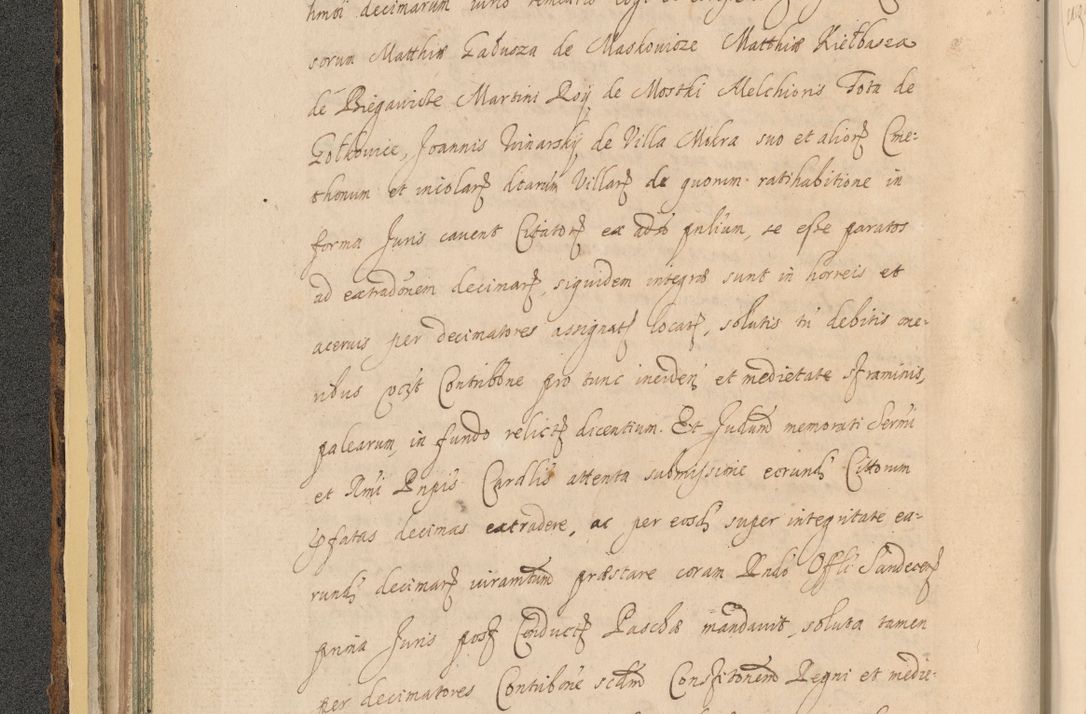 hmoi decimarum
sorum Matthiæ Gadusza de Maskowicze Matthiæ Kiełbasea
de Biegawiste Martini Roÿ de Mostki Melchioris Tota de
Gołkowice, Joannis Winarskÿ de Villa Mokra suo et alior Cme-
thonum et incolar dtarum Villar de quorum ratihabitione in
forma Juris cavent Citator ex adso pnlium, se esse paratos
ad extradonem decimar, siquidem integræ sunt in horreis et
acervis per decimatores assignat locat, solutis tn debitis one-
ribus Contribone pro tunc inciden et medietate straminis,
palearum, in fundo relict dicentium. Et Judum memorati Sermi
et Rmi Pnpis Cardlis attenta submissione eorund Cittorum
pfatas decimas extradere, ac per eosd super integritate ea-
rund decimar iuramtum præstare coram Rndo Offli Sandecen
prima Juris post Conduct Paschæ mandavit, soluta tamen
per decimatores Contribone scdm Constitonem Regni et medie-